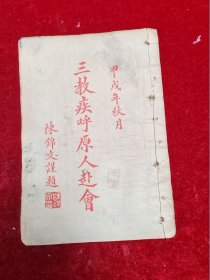 甲戌年秋月
三教疾呼原人赴會
陳錦文謹題